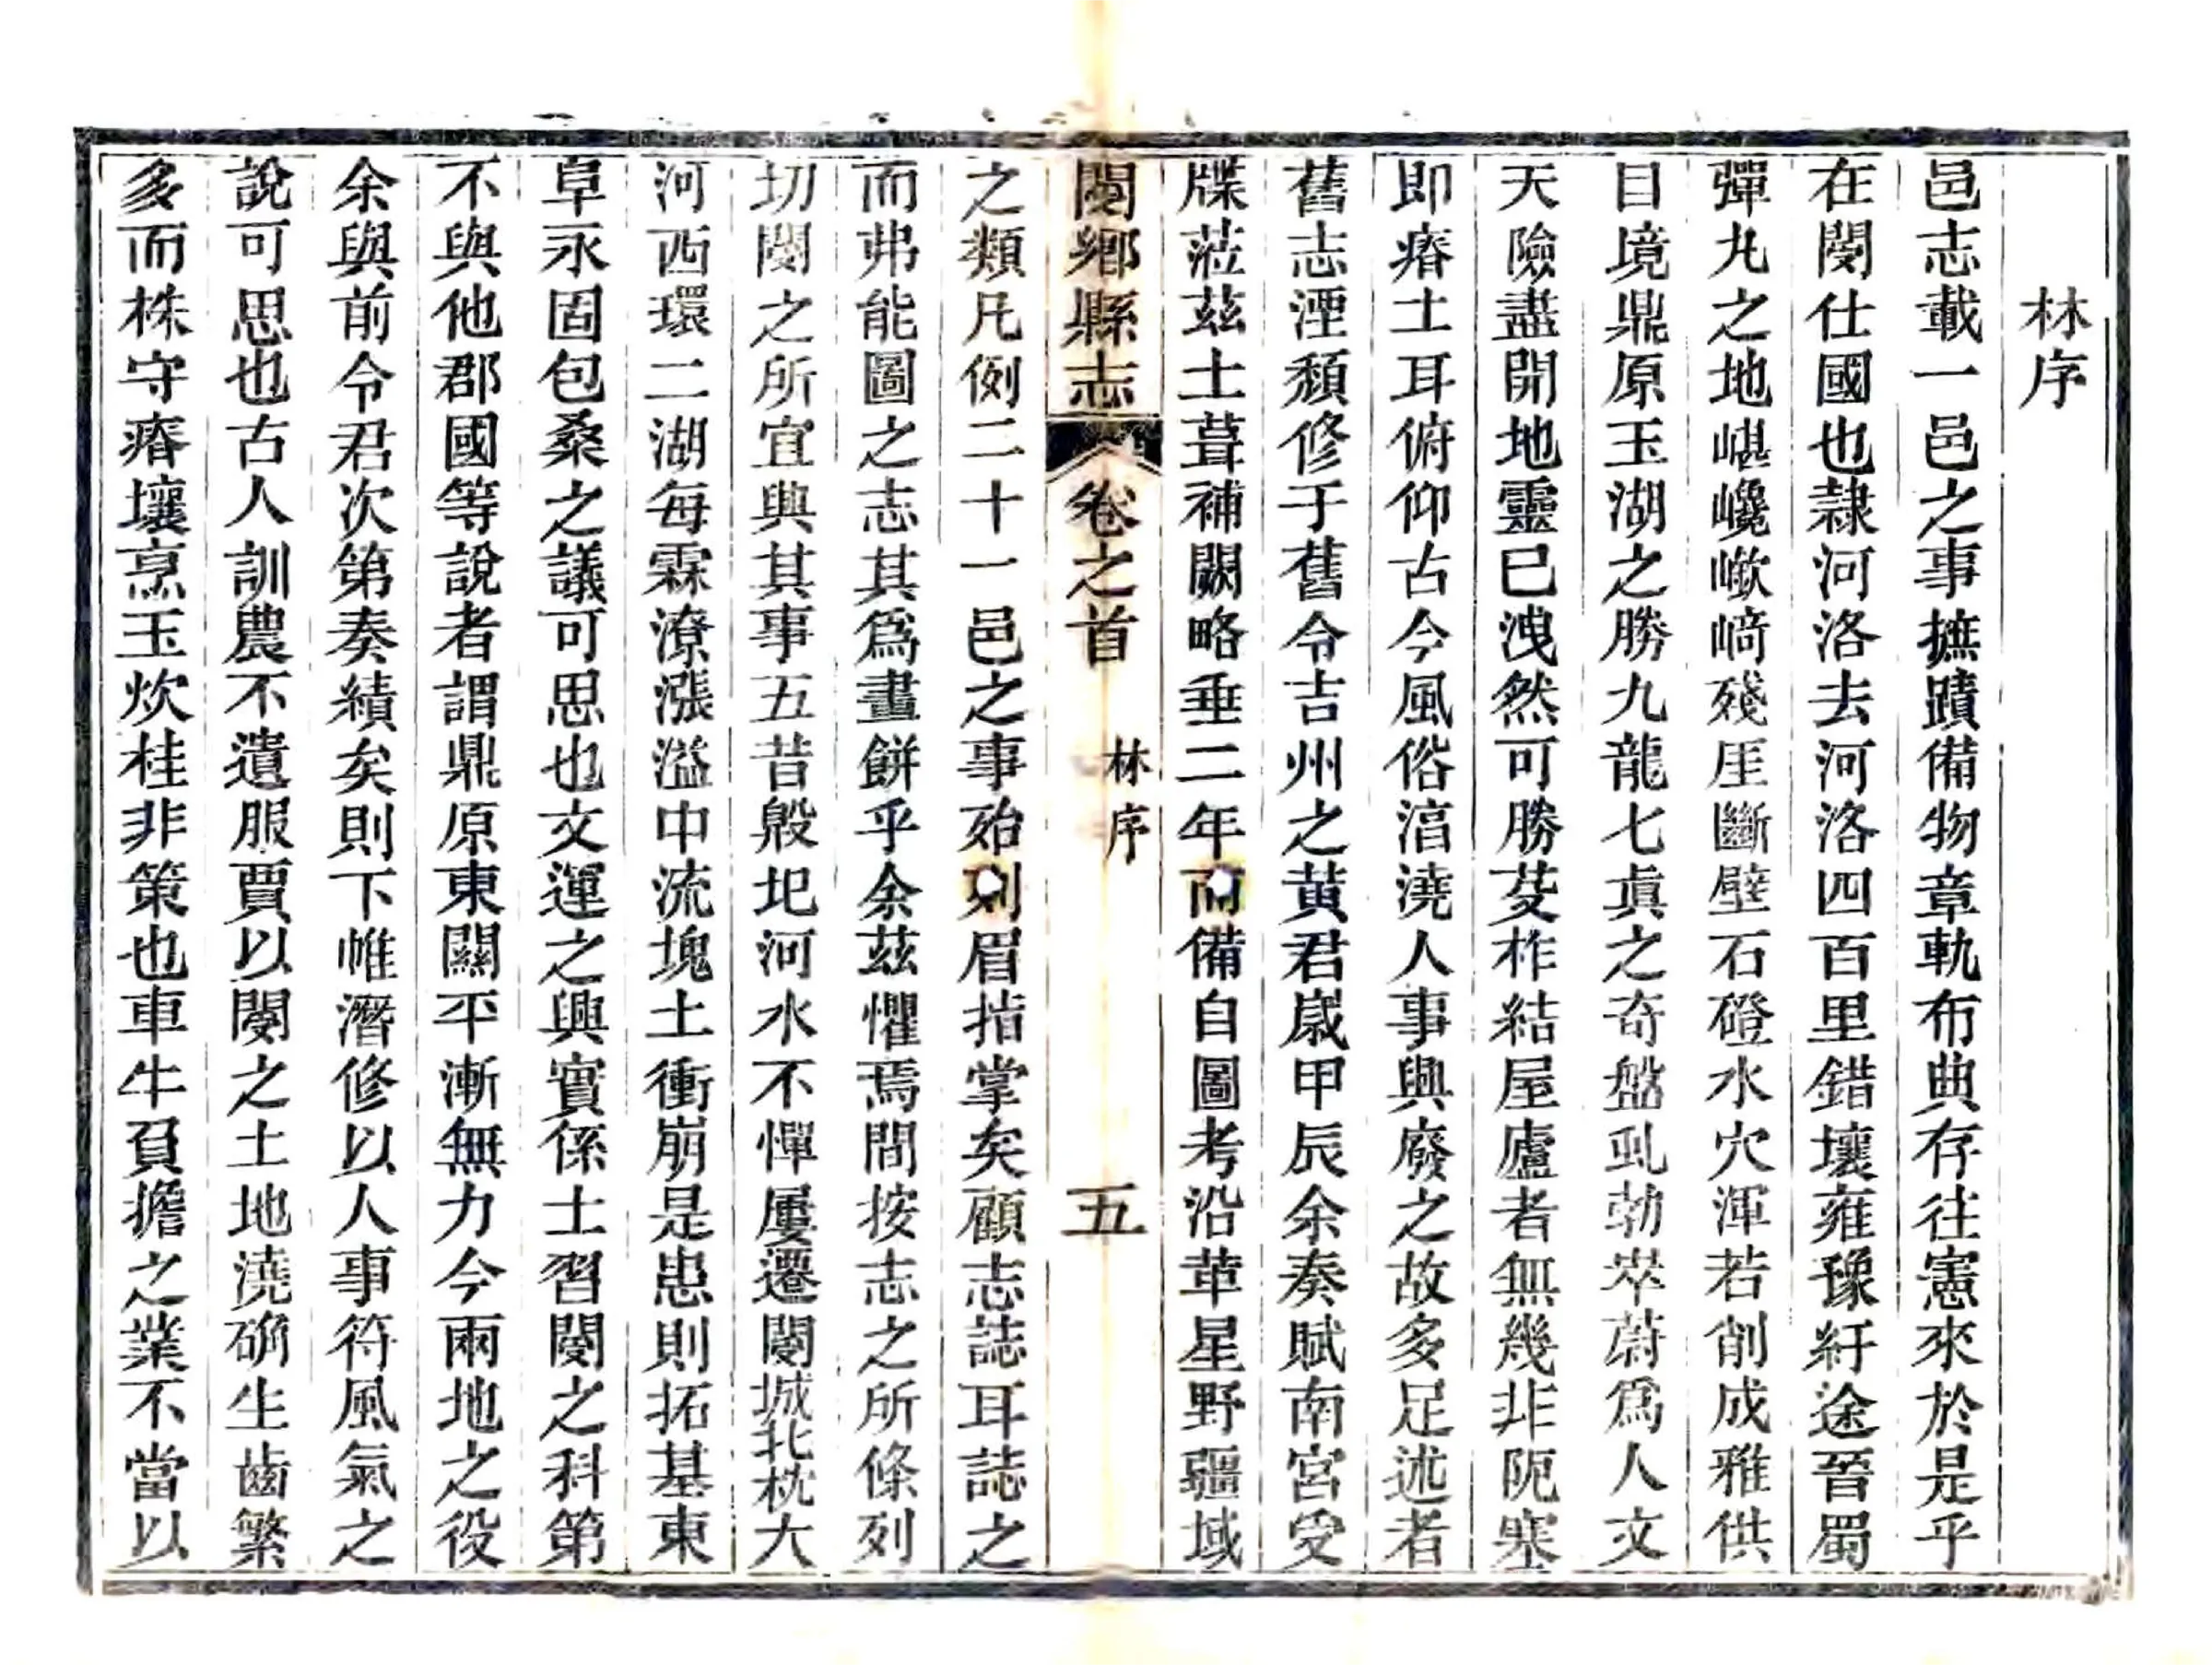 林序
邑志載一邑之事摭蹟備物章軌布典存往憲來於是乎
在閿仕國也隷河洛去河洛四百里錯壤雍豫紆途晉蜀
彈丸之地嵁巉嶔崎殘厓斷壁石磴水穴渾若削成雅供
目境鼎原玉湖之勝九龍七眞之奇盤虬勃崒蔚爲人文
天險盡開地靈已洩然可勝芟柞結屋廬者無幾非阨塞
即瘠土耳俯仰古今風俗滀澆人事與廢之故多足述者
舊志湮頽修于舊令吉州之黄君嵗甲辰余奏賦南宮受
牒蒞兹土葺補闕略垂二年而備自圖考沿革星野疆域
閿鄉縣志
卷之首
林序
五
之類凡例二十一邑之事始列眉指掌矣顧志誌耳誌之
而弗能圖之志其爲畫餅乎余茲懼焉間按志之所條列
切閿之所宜與其事五昔殷圯河水不憚屢遷閿城北枕大
河西環二湖每霖潦漲溢中流塊土衝崩是患則拓基東
阜永固包桑之議可思也文運之興實係士習閿之科第
不與他郡國等說者謂鼎原東關平漸無力今兩地之役
余與前令君次第奏績矣則下帷潛修以人事符風氣之
說可思也古人訓農不遺服賈以閿之土地澆确生齒繁
多而株守瘠壤烹玉炊桂非策也車牛負擔之業不當以